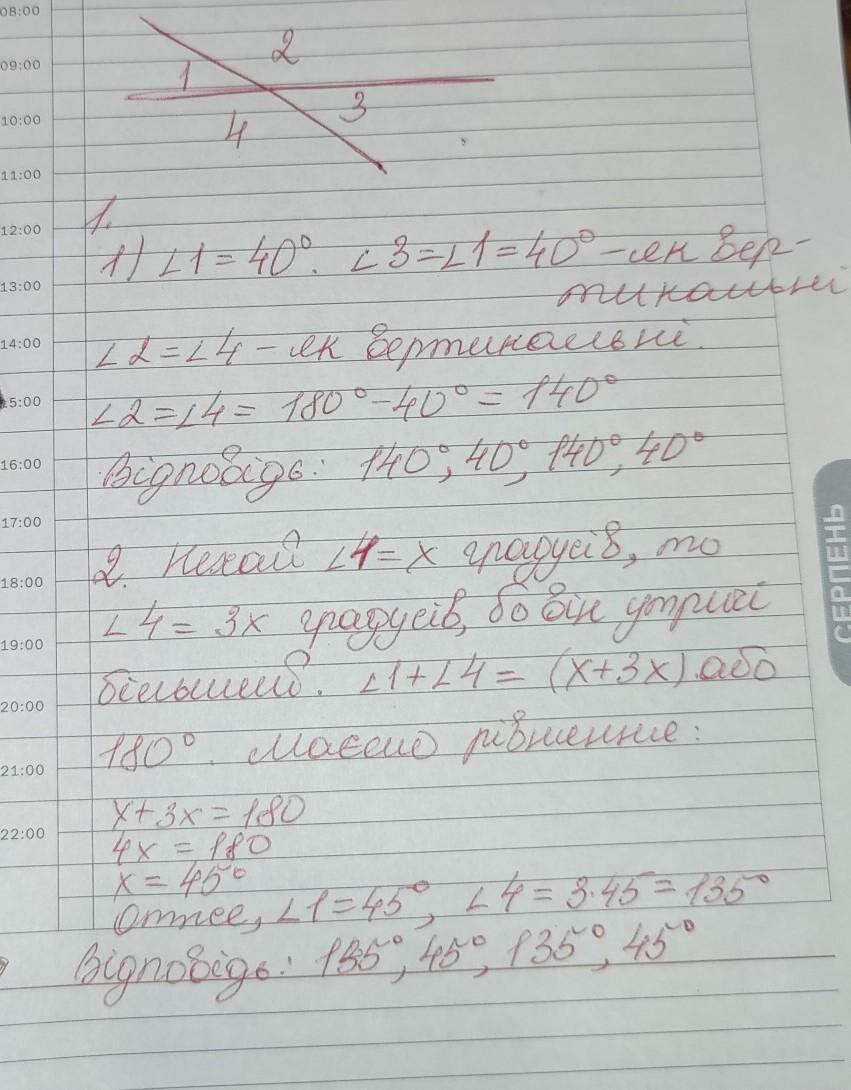 08:00
09:00
10:00
11:00
12:00
13:00
14:00
15:00
16:00
17:00
18:00
19:00
20:00
21:00
22:00
СЕРПЕНЬ
1 2
4 3
1.
1) ∠1=40°. ∠3=∠1=40° – як вер-
тикальні
∠2=∠4 – як вертикальні.
∠2=∠4= 180°-40°= 140°
Відповідь: 140°, 40°, 140°, 40°
2. Нехай ∠1= x градусів, то
∠4= 3x градусів, бо він утричі
більший. ∠1+∠4= (x+3x) або
180°. Маємо рівняння:
x+3x=180
4x=180
x=45°
Отже, ∠1=45°, ∠4=3·45=135°
Відповідь: 135°, 45°, 135°, 45°